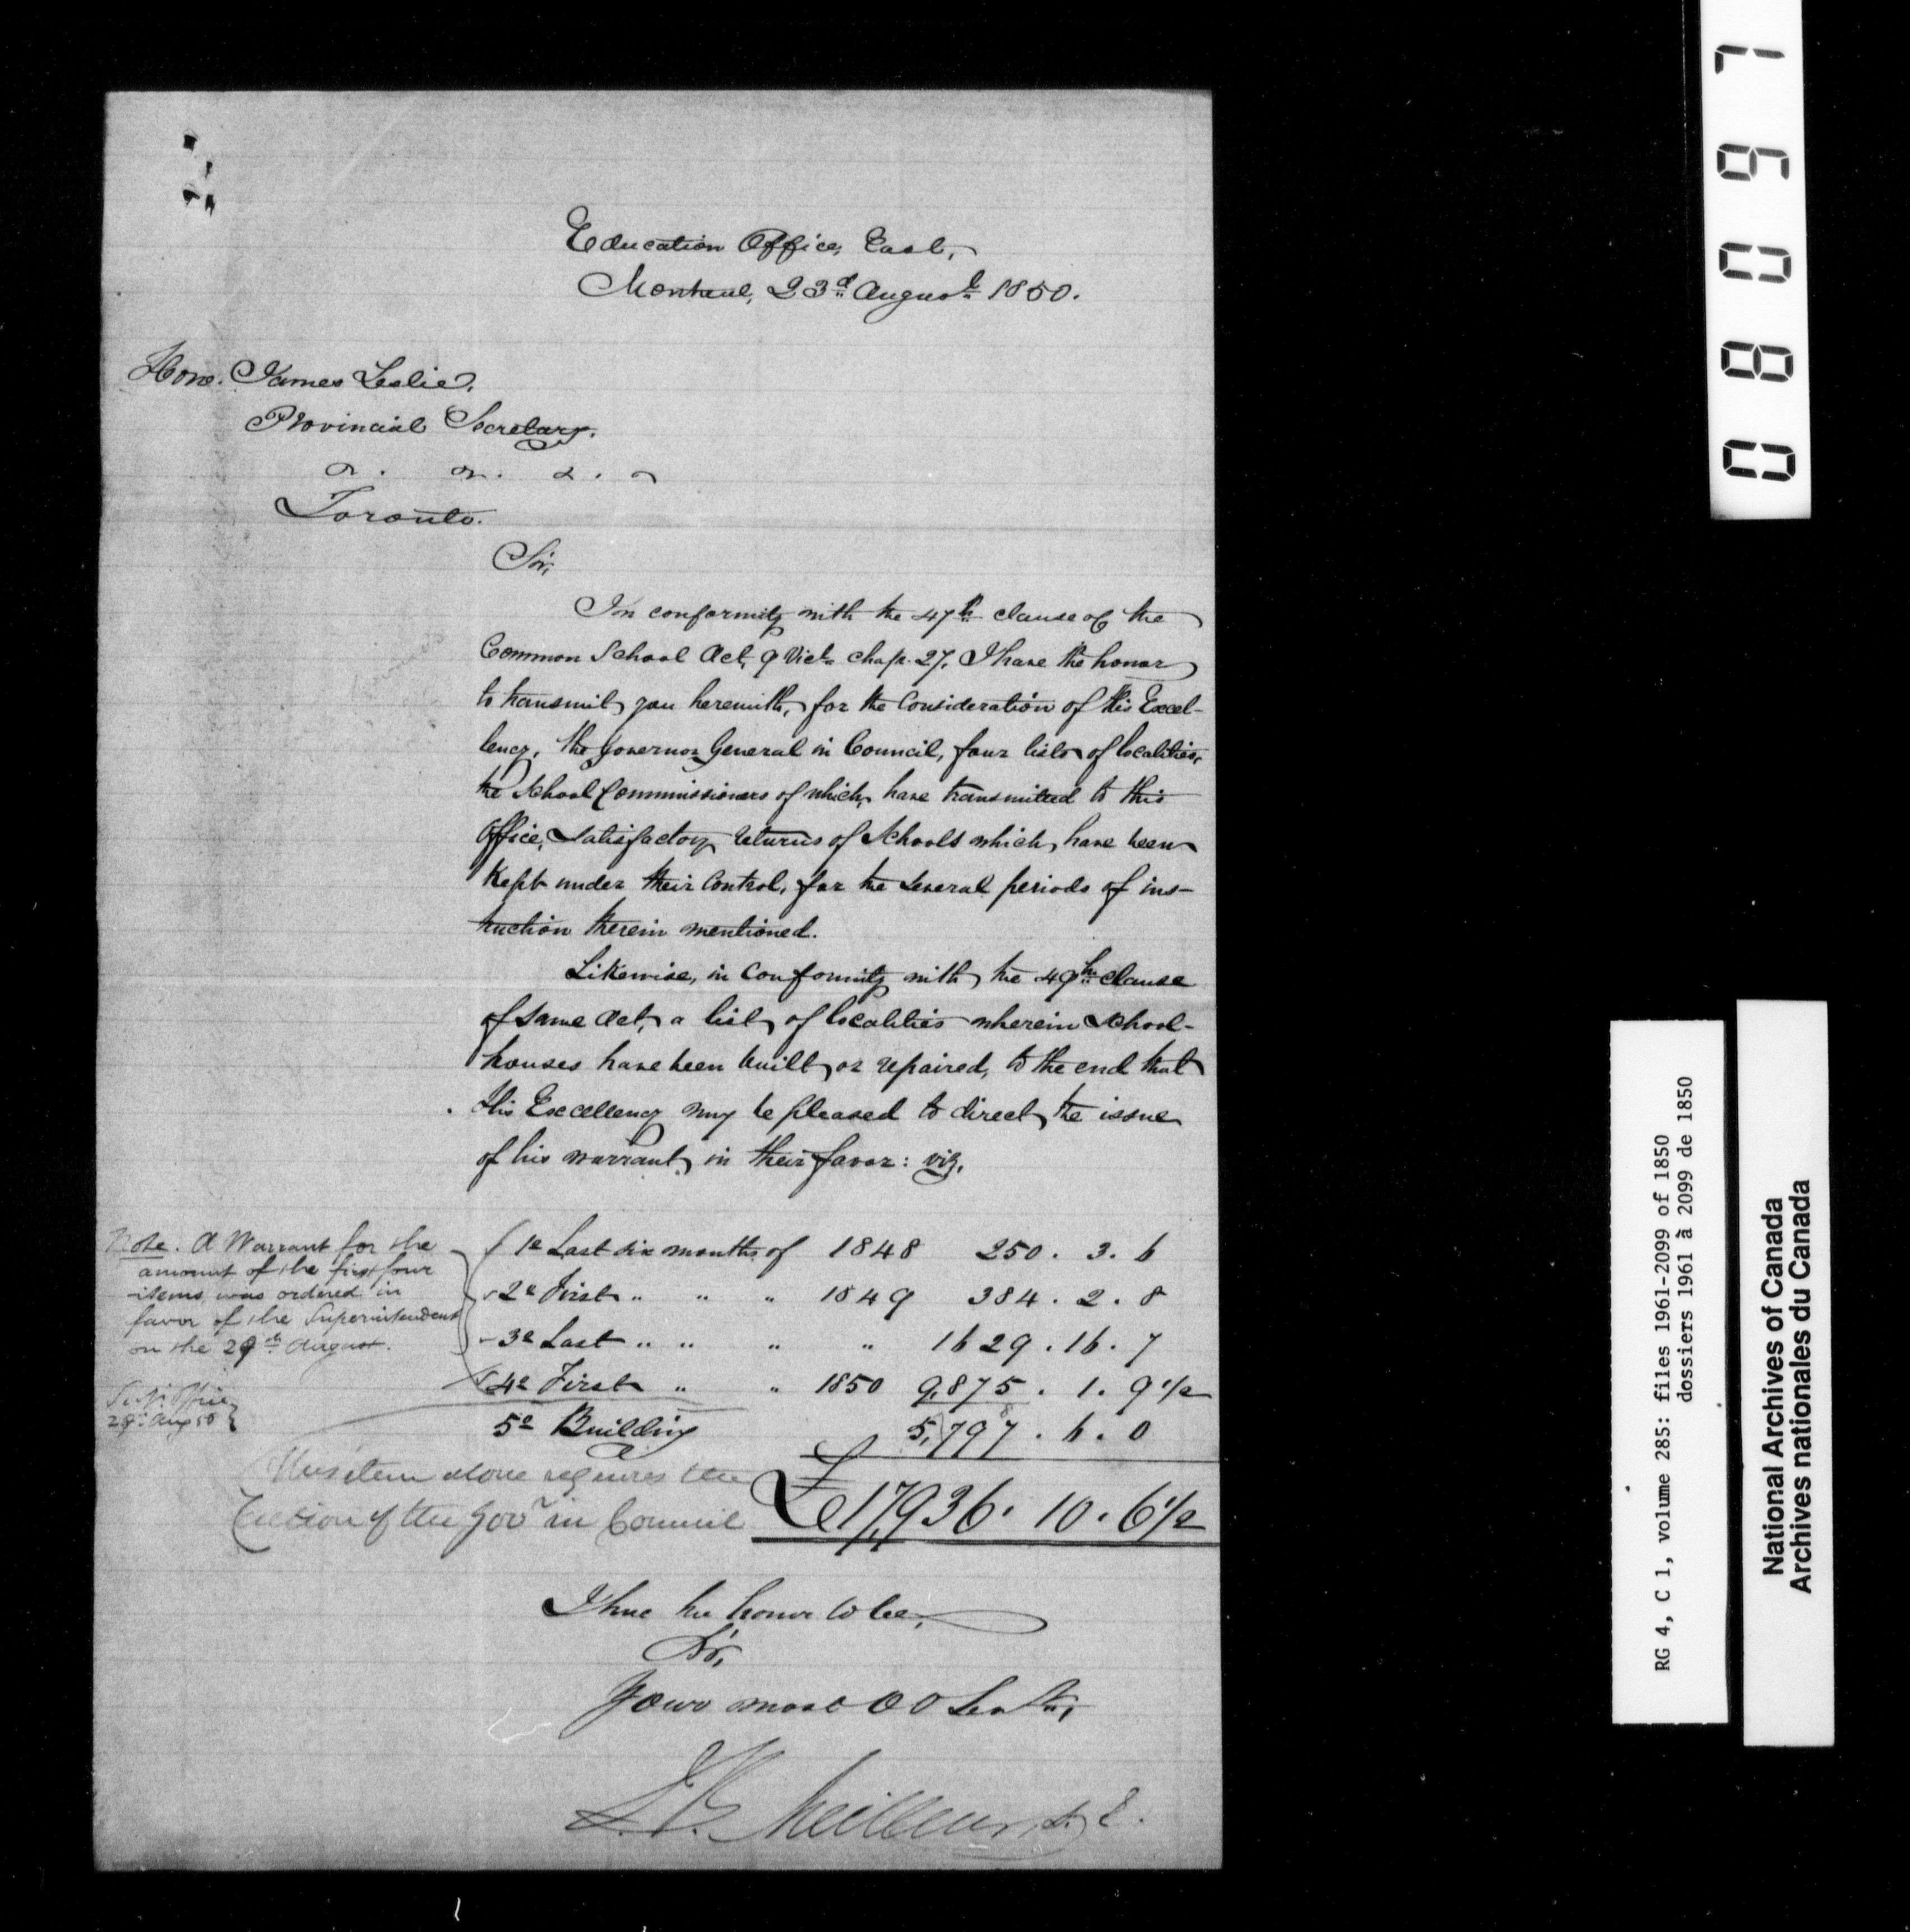 Education Office, East,
Montreal, 23d August 1850.
Hone. James Leslie,
Provincial Secretary.
&. &. &.
Toronto.
Sir,
In conformity with the 47th clause of the
Common School Act, 9 Vict. chap. 27, I have the honor
to transmit you herewith, for the Consideration of His Excel-
lency, the Governor General in Council, four lists of localities,
the School Commissioners of which, have transmitted to this
Office, Satisfactory returns of Schools which, have been
Kept under their Control, for the several periods of ins-
truction therein mentioned.
Likewise, in Conformity with, the 49th clause
of Same Act, a list, of localities wherein School-
houses have been built, or repaired, to the end that
His Excellency may be pleased to direct, the issue
of his warrant, in their favor: viz,
Note. A Warrant for the
amount of the first four
items, was ordered in
favor of the Superintendent
on the 29th August.
29 Aug 50
1e Last six months of 1848 250. 3. 6
2e First " " " 1849 384. 2. 8
3e Last " " " " 1629. 16. 7
4e First " " 1850 9,875. 1. 9 1/2
5e Building 5,797. 6. 0
£17,936. 10. 6 1/2
This item alone requires the
Action of the Govr in Council
I have the honor to be,
Sir,
Your most Ob Servt,
J. B. Meilleur, S. E.
08097
RG 4, C 1, volume 285: files 1961-2099 of 1850
dossiers 1961 à 2099 de 1850
National Archives of Canada
Archives nationales du Canada